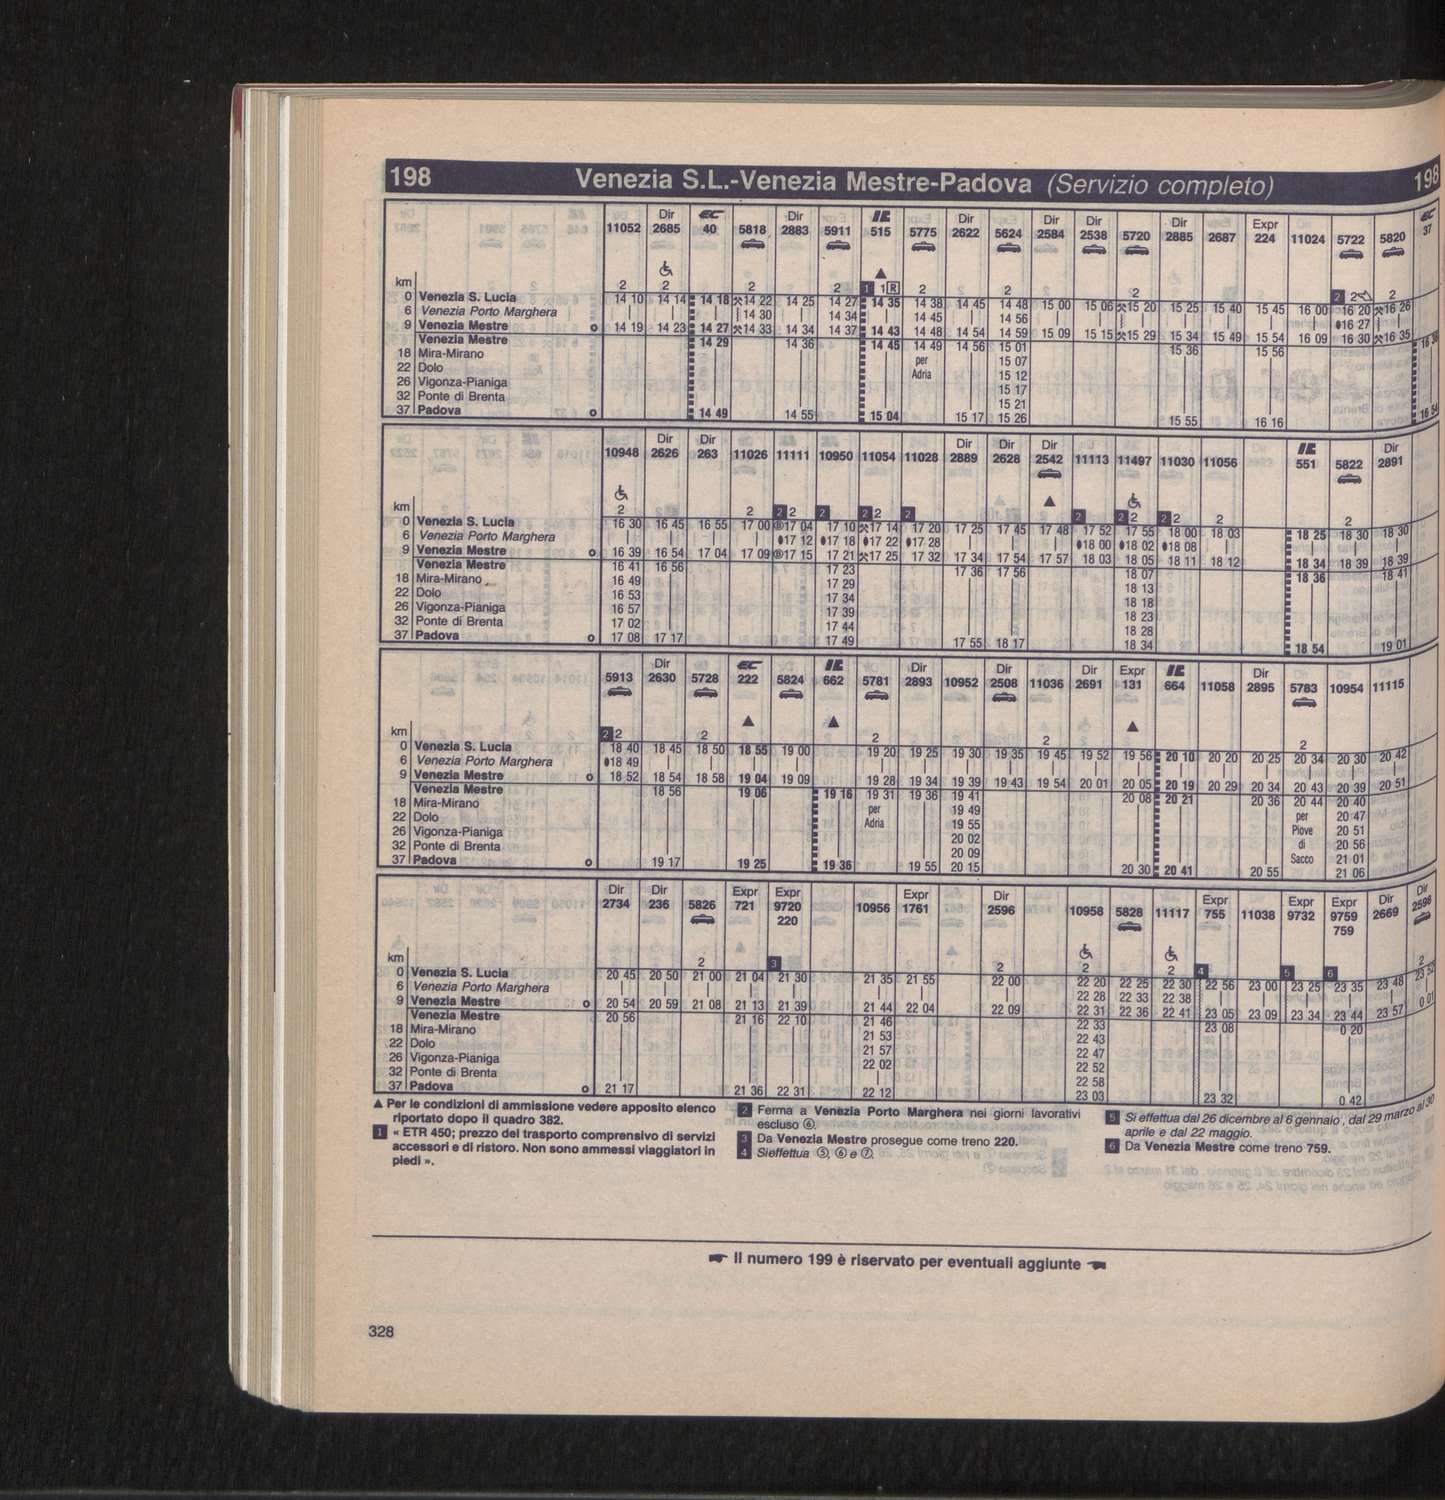 198 Venezia S.L.-Venezia Mestre-Padova (Servizio completo) 198
Dir EC Dir IC Dir Dir Dir Dir Expr EC
11052 2685 40 5818 2883 5911 515 5775 2622 5624 2584 2538 5720 2885 2687 224 11024 5722 5820 37
km 2 2 2 2 1 1 R 2 2 2 2 2 2
0 Venezia S. Lucia 14 10 14 14 14 18 14 22 14 25 14 27 14 35 14 38 14 45 14 48 15 00 15 06 15 20 15 25 15 40 15 45 16 00 16 20 16 26
6 Venezia Porto Marghera | | | 14 30 | 14 34 | 14 45 | 14 56 | | | | | | | 16 27 |
9 Venezia Mestre o 14 19 14 23 14 27 14 33 14 34 14 37 14 43 14 48 14 54 14 59 15 09 15 15 15 29 15 34 15 49 15 54 16 09 16 30 16 35
Venezia Mestre 14 29 14 36 14 45 14 49 14 56 15 01 15 36 15 56 16 36
18 Mira-Mirano per 15 07
22 Dolo Adria 15 12
26 Vigonza-Pianiga 15 17
32 Ponte di Brenta 15 21
37 Padova o 14 49 14 55 15 04 15 17 15 26 15 55 16 16 16 54
Dir Dir Dir Dir Dir IC Dir
10948 2626 263 11026 11111 10950 11054 11028 2889 2628 2542 11113 11497 11030 11056 551 5822 2891
km 2 2 2 2 2 2 2 2 2 2 2 2 2 2 2
0 Venezia S. Lucia 16 30 16 45 16 55 17 00 17 04 17 10 17 14 17 20 17 25 17 45 17 48 17 52 17 55 18 00 18 03 18 25 18 30 18 30
6 Venezia Porto Marghera | | | | 17 12 17 18 17 22 17 28 | | | 18 00 18 02 18 08 | | | |
9 Venezia Mestre o 16 39 16 54 17 04 17 09 17 15 17 21 17 25 17 32 17 34 17 54 17 57 18 03 18 05 18 11 18 12 18 34 18 39 18 39
Venezia Mestre 16 41 16 56 17 23 17 36 17 56 18 07 18 36 18 41
18 Mira-Mirano 16 49 17 29 18 13
22 Dolo 16 53 17 34 18 18
26 Vigonza-Pianiga 16 57 17 39 18 23
32 Ponte di Brenta 17 02 17 44 18 28
37 Padova o 17 08 17 17 17 49 17 55 18 17 18 34 18 54 19 01
Dir EC IC Dir Dir Dir Expr IC Dir
5913 2630 5728 222 5824 662 5781 2893 10952 2508 11036 2691 131 664 11058 2895 5783 10954 11115
km 2 2 2 2 2 2
0 Venezia S. Lucia 18 40 18 45 18 50 18 55 19 00 19 20 19 25 19 30 19 35 19 45 19 52 19 56 20 10 20 20 20 25 20 34 20 30 20 42
6 Venezia Porto Marghera 18 49 | | | | | | | | | | | | | | | | |
9 Venezia Mestre o 18 52 18 54 18 58 19 04 19 09 19 28 19 34 19 39 19 43 19 54 20 01 20 05 20 19 20 29 20 34 20 43 20 39 20 51
Venezia Mestre 18 56 19 06 19 16 19 31 19 36 19 41 20 08 20 21 20 36 20 44 20 40
18 Mira-Mirano per 19 49 per 20 47
22 Dolo Adria 19 55 Piove 20 51
26 Vigonza-Pianiga 20 02 di 20 56
32 Ponte di Brenta 20 09 Sacco 21 01
37 Padova o 19 17 19 25 19 36 19 55 20 15 20 30 20 41 20 55 21 06
Dir Dir Expr Expr Expr Dir Expr Expr Expr Dir Dir
2734 236 5826 721 9720 10956 1761 2596 10958 5828 11117 755 11038 9732 9759 2669 2598
220 759
km 2 3 2 2 2 4 5 6 2
0 Venezia S. Lucia 20 45 20 50 21 00 21 04 21 30 21 35 21 55 22 00 22 20 22 25 22 30 22 56 23 00 23 25 23 35 23 48 23 52
6 Venezia Porto Marghera | | | | | | | | 22 28 22 33 22 38 | | | | | |
9 Venezia Mestre o 20 54 20 59 21 08 21 13 21 39 21 44 22 04 22 09 22 31 22 36 22 41 23 05 23 09 23 34 23 44 23 57 0 01
Venezia Mestre 20 56 21 16 22 10 21 46 22 33 23 08 0 20
18 Mira-Mirano 21 53 22 43
22 Dolo 21 57 22 47
26 Vigonza-Pianiga 22 02 22 52
32 Ponte di Brenta | 22 58
37 Padova o 21 17 21 36 22 31 22 12 23 03 23 32 0 42
▲ Per le condizioni di ammissione vedere apposito elenco
riportato dopo il quadro 382.
1 « ETR 450; prezzo del trasporto comprensivo di servizi
accessori e di ristoro. Non sono ammessi viaggiatori in
piedi ».
2 Ferma a Venezia Porto Marghera nei giorni lavorativi
escluso ⑥.
3 Da Venezia Mestre prosegue come treno 220.
4 Sieffettua ⑤, ⑥ e ⑦.
5 Si effettua dal 26 dicembre al 6 gennaio, dal 29 marzo al 30
aprile e dal 22 maggio.
6 Da Venezia Mestre come treno 759.
Il numero 199 è riservato per eventuali aggiunte
328